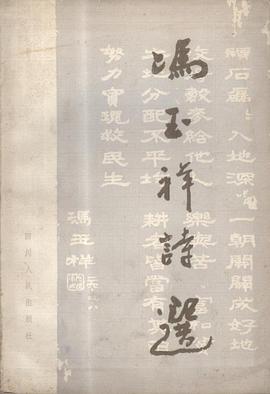 馮玉祥詩選
石 入地深 一朝開闢成好地
穀 給他人 樂與苦 富
分配不平均 耕者皆當有其
努力實現救民生
馮玉祥 一九
四川人民出版社